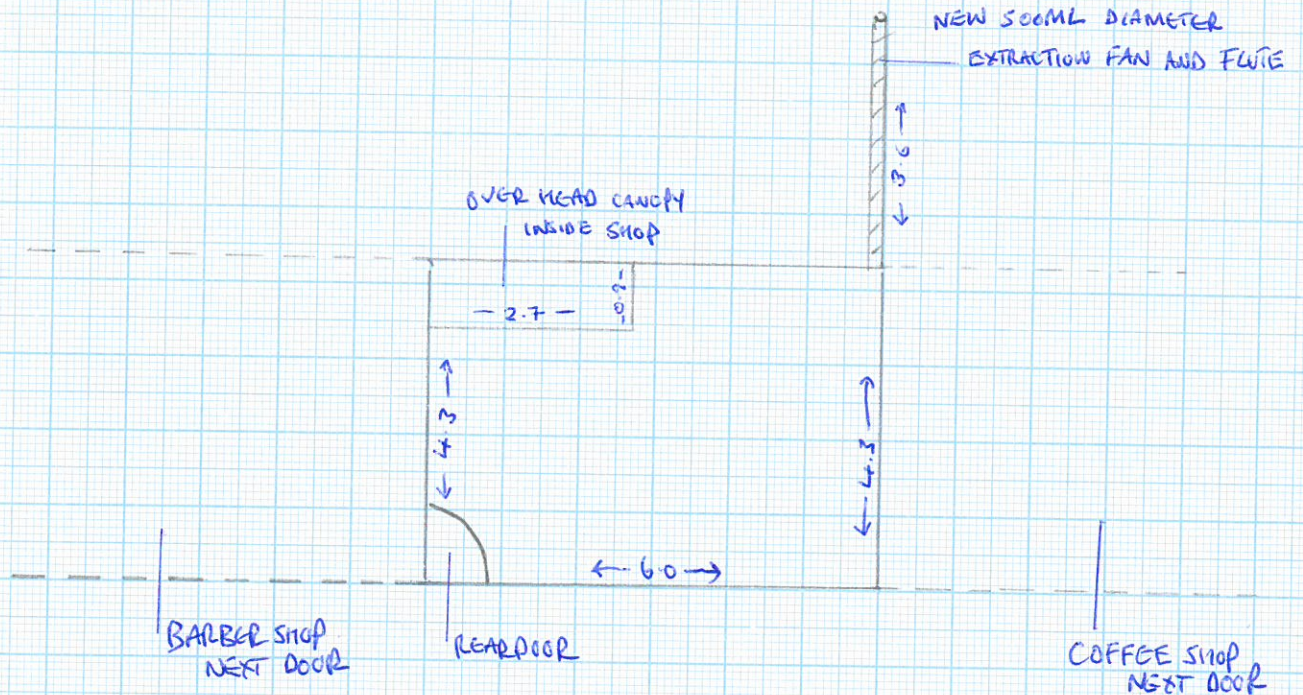 NEW 500ML DIAMETER
EXTRACTION FAN AND FLUTE
3.6
OVER HEAD CANOPY
INSIDE SHOP
2.7
0.9
4.3
4.3
6.0
BARBER SHOP
NEXT DOOR
REARDOOR
COFFEE SHOP
NEXT DOOR